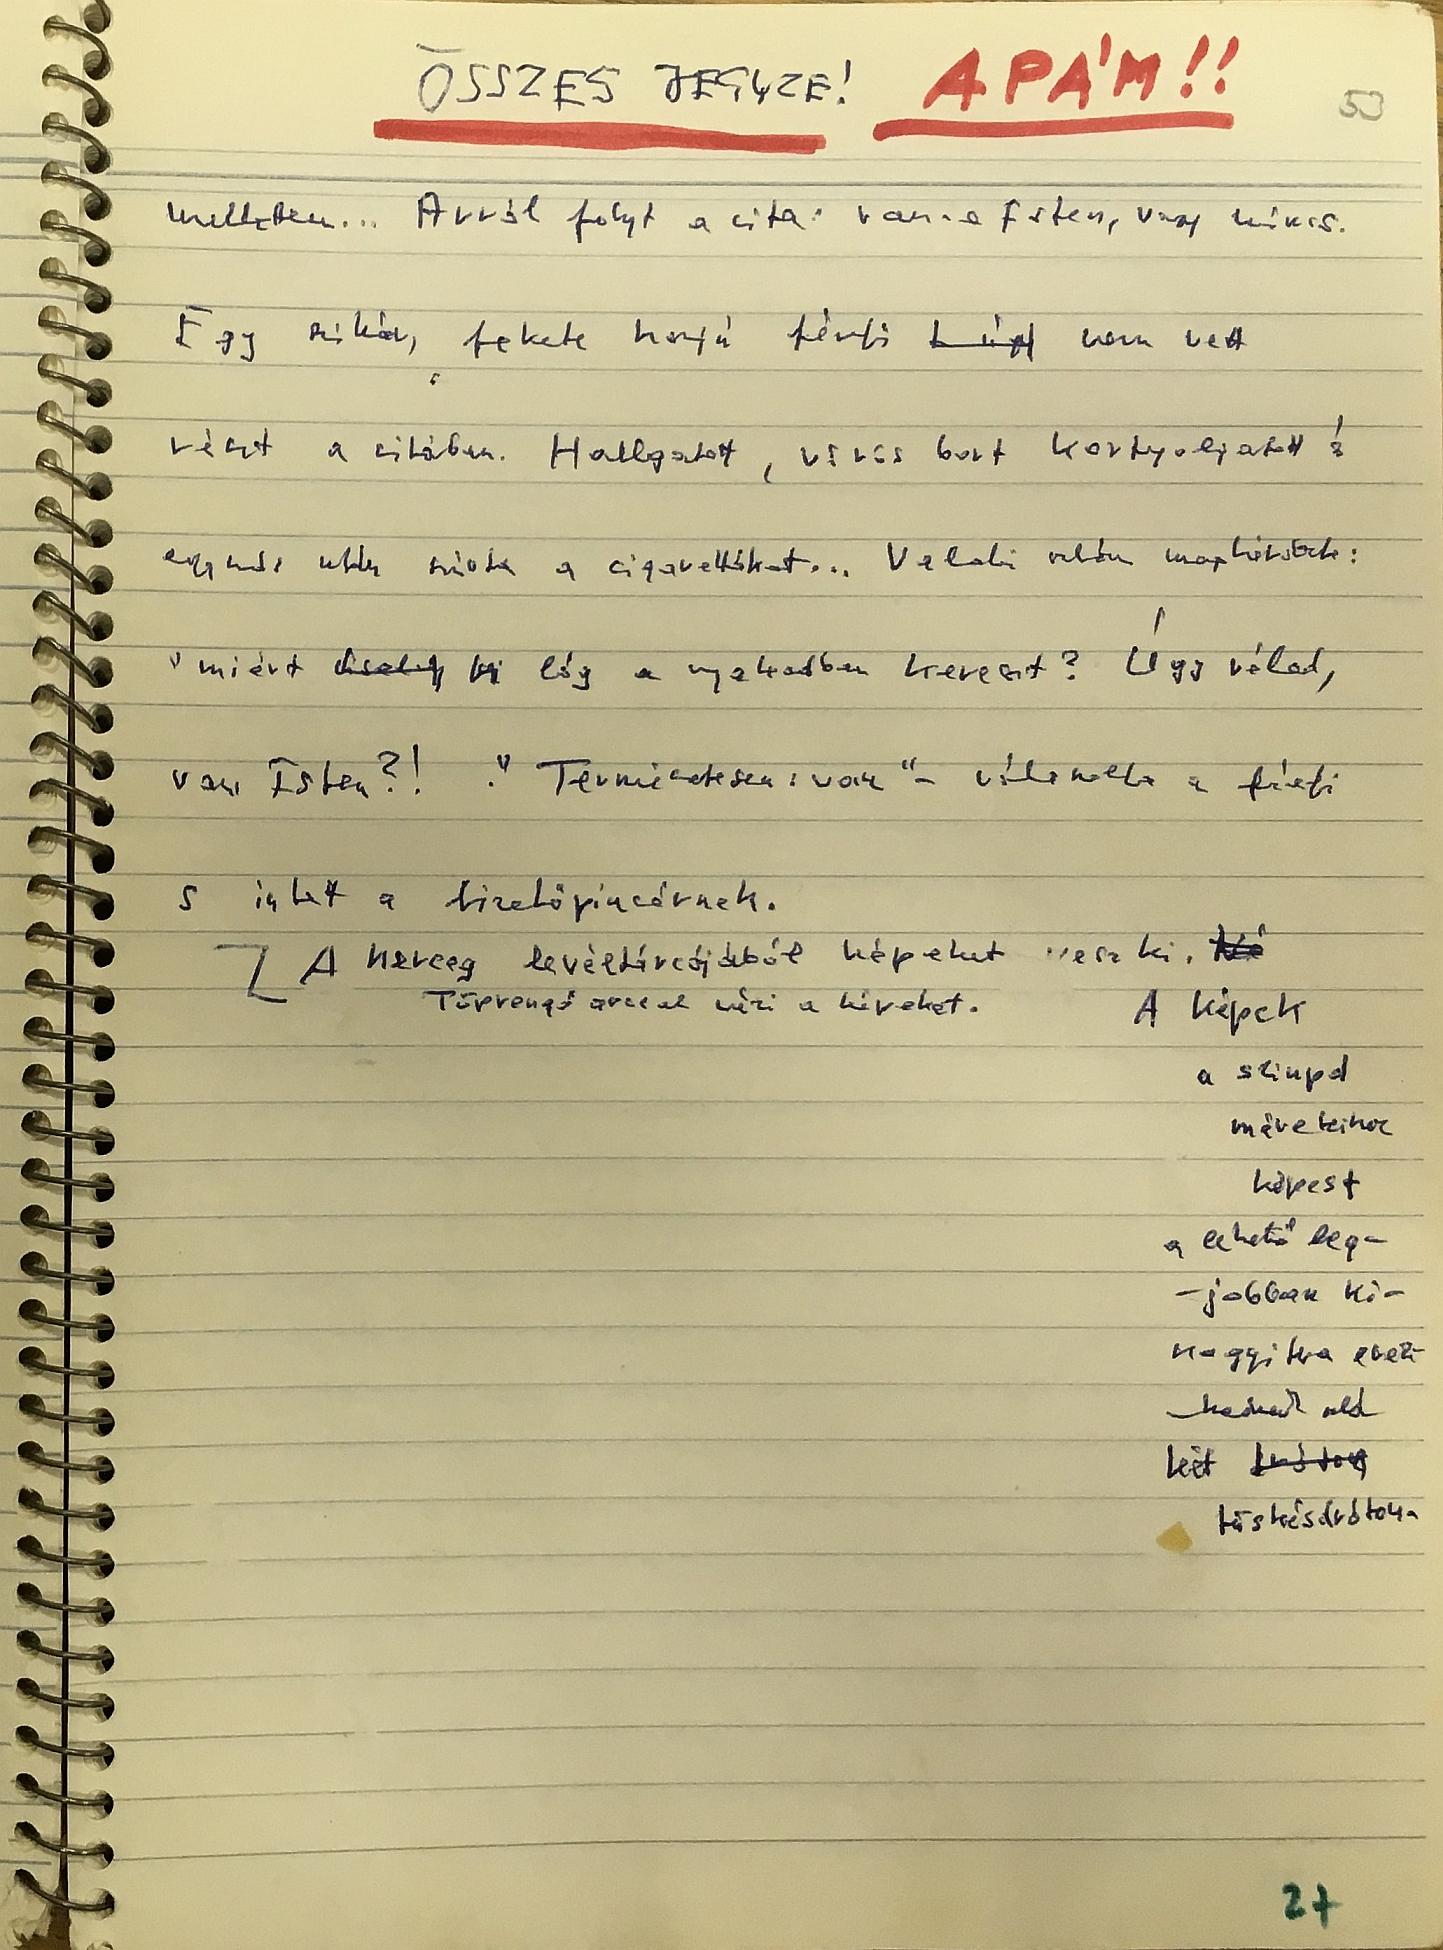 ÖSSZES JEGYZE! APÁM!!
53
mellettem... Arról folyt a vita: van-e Isten, vagy nincs.
Egy szikár, fekete hajú férfi nem vett
részt a vitában. Hallgatott, vörös bort kortyolgatott s
egymás után szívta a cigarettákat... Valaki aztán megkérdezte:
"miért lóg a nyakadban kereszt? Úgy véled,
van Isten?! "Természetesen: van" - válaszolta a férfi
s intett a fizetőpincérnek.
A herceg levéltárcájából képeket vesz ki.
Töprengő arccal nézi a képeket. A képek
a színpad
méreteihez
képest
a lehető leg-
-jobban ki-
nagyítva
két
tüskésdróton
27